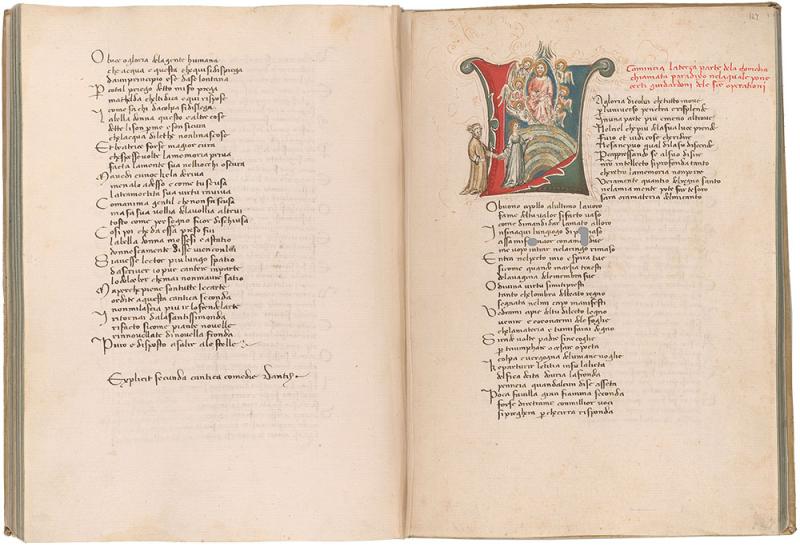 O luce o gloria dela gente humana
che acqua e questa che qui si dispiega
da un principio e se da se lontana
P cotal priego detto mi fo prega
mathelda chel ti dica e qui rispose
come fa chi da colpa si dislega
L a bella donna questo e altre cose
dette li son p me e son sicura
che lacqua di lethe non li nascose
E t beatrice forse magior cura
che spesse volte la memoria priva
facta la mente sua nelli ochi oscura
M a vedi eunoe che la deriva
menalo adesso e come tu se usa
la tramortita sua virtu raviva
C om anima gentil che non fa scusa
ma fa sua voglia dela voglia altrui
tosto come per segno fior dischiusa
C osi poi che da essa preso fui
la bella donna mosse si e a statio
donnescamente disse vien con lui
S io avesse lector piu lungo spatio
da scriver io pur cantere in parte
lo dolce ber che mai non mavre satio
M a perche piene son tutte le carte
ordite a questa cantica seconda
non mi lascia piu ir lo fren delarte
I o ritornai dala santissima onda
rifacto si come piante novelle
rinnovellate di novella fronda
P uro e disposto a salire ale stelle
Explicit secunda cantica comedie Dantis
127
Comincia la terza parte dela comedia
chiamata paradiso nela quale pone
certi guidardoni dele sue operationi
La gloria di colui che tutto move
p luniverso penetra e risplende
in una parte piu e meno altrove
Nel ciel che piu dela sua luce prende
fu io et vidi cose che ridire
ne sa ne puo qual di la su discende
P che appressando se al suo disire
nro intellecto si profonda tanto
che retro la memoria non po ire
Veramente quantio del regno santo
nela mia mente pote far tesoro
sara ora materia del mio canto
O buono apollo al ultimo lavoro
fame del tuo valor si facto vaso
come dimandi dar lamato alloro
I nsina qui lun giogo di
assa mi or con
me vopo intrar nel aringo rimaso
E ntra nel pecto mio e spira tue
si come quando marsia traesti
dela vagina dele membra sue
O divina virtu si mi ti presti
tanto che lombra del beato regno
segnata nel mi capo manifesti
V edrami a pie del tu dilecto legno
venire e coronarmi dele foglie
che la materia e tu mi farai degno
S i rade volte padre sine coglie
p triumphare o cesare o poeta
colpa e vergogna del umane voglie
C he parturir letitia in su la lieta
delfica deita dovria la fronda
peneia quando alcun di se asseta
P oca favilla gran fiamma seconda
forse di retro a me con miglior voci
si preghera p che cirra risponda